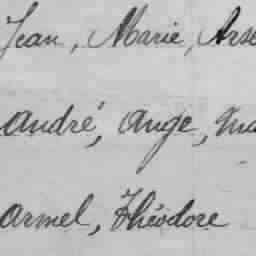 Jean, Marie, Arse
André, Ange, Ma
Armel, Théodore